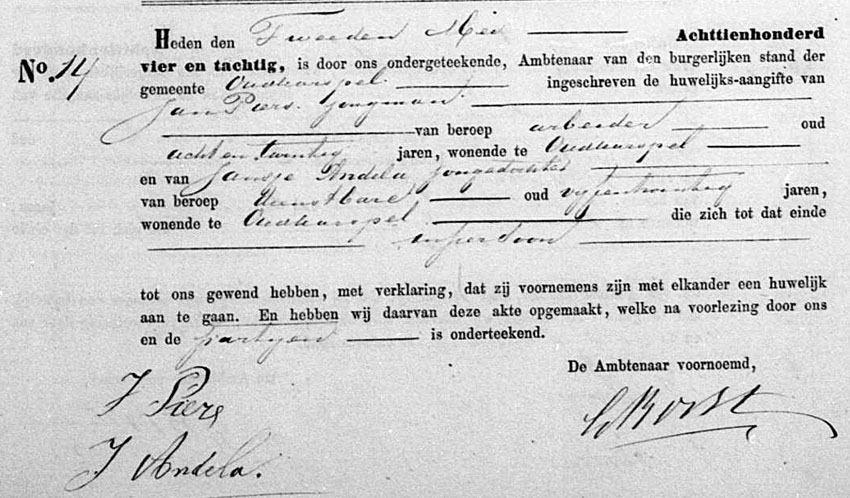 Heden den Tweeden Mei Achttienhonderd
No. 14 vier en tachtig, is door ons ondergeteekende, Ambtenaar van den burgerlijken stand der
gemeente Oudkarspel ingeschreven de huwelijks-aangifte van
Jan Piers. jongman.
van beroep arbeider oud
acht en twintig jaren, wonende te Oudkarspel
en van Jansje Andela jongedochter
van beroep dienstbare oud vyfentwintig jaren,
wonende te Oudkarspel die zich tot dat einde
in persoon
tot ons gewend hebben, met verklaring, dat zij voornemens zijn met elkander een huwelijk
aan te gaan. En hebben wij daarvan deze akte opgemaakt, welke na voorlezing door ons
en de partyen is onderteekend.
De Ambtenaar voornoemd,
J Piers
Borst
J Andela.